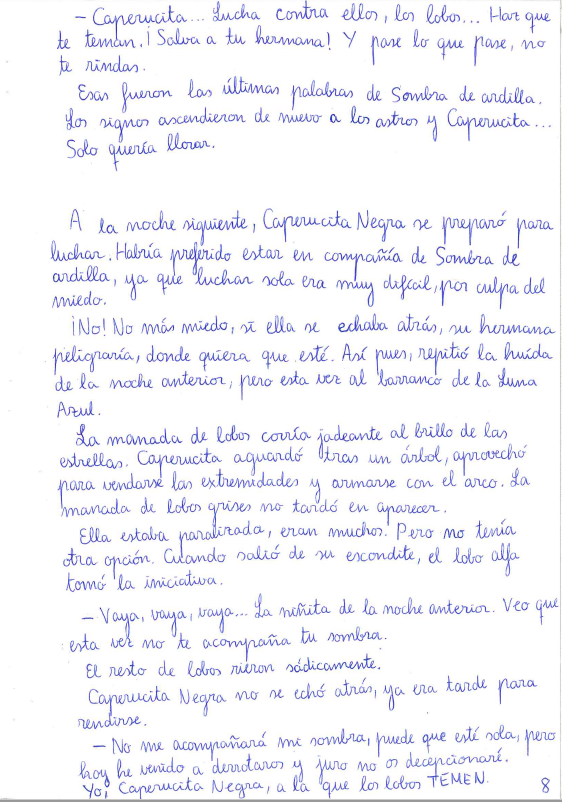 – Caperucita... Lucha contra ellos, los lobos... Haz que
te teman. ¡Salva a tu hermana! Y pase lo que pase, no
te rindas.
Esas fueron las últimas palabras de Sombra de ardilla.
Los signos ascendieron de nuevo a los astros y Caperucita...
Solo quería llorar.
A la noche siguiente, Caperucita Negra se preparó para
luchar. Habría preferido estar en compañía de Sombra de
ardilla, ya que luchar sola era muy difícil, por culpa del
miedo.
¡No! No más miedo, si ella se echaba atrás, su hermana
peligraría, donde quiera que esté. Así pues, repitió la huída
de la noche anterior, pero esta vez al barranco de la Luna
Azul.
La manada de lobos corría jadeante al brillo de las
estrellas. Caperucita aguardó tras un árbol, aprovechó
para vendarse las extremidades y armarse con el arco. La
manada de lobos grises no tardó en aparecer.
Ella estaba paralizada, eran muchos. Pero no tenía
otra opción. Cuando salió de su escondite, el lobo alfa
tomó la iniciativa.
– Vaya, vaya, vaya... La niñita de la noche anterior. Veo que
esta vez no te acompaña tu sombra.
El resto de lobos rieron sádicamente.
Caperucita Negra no se echó atrás, ya era tarde para
rendirse.
– No me acompañará mi sombra, puede que esté sola, pero
hoy he venido a derrotaros y juro no os decepcionaré.
Yo, Caperucita Negra, a la que los lobos TEMEN.
8